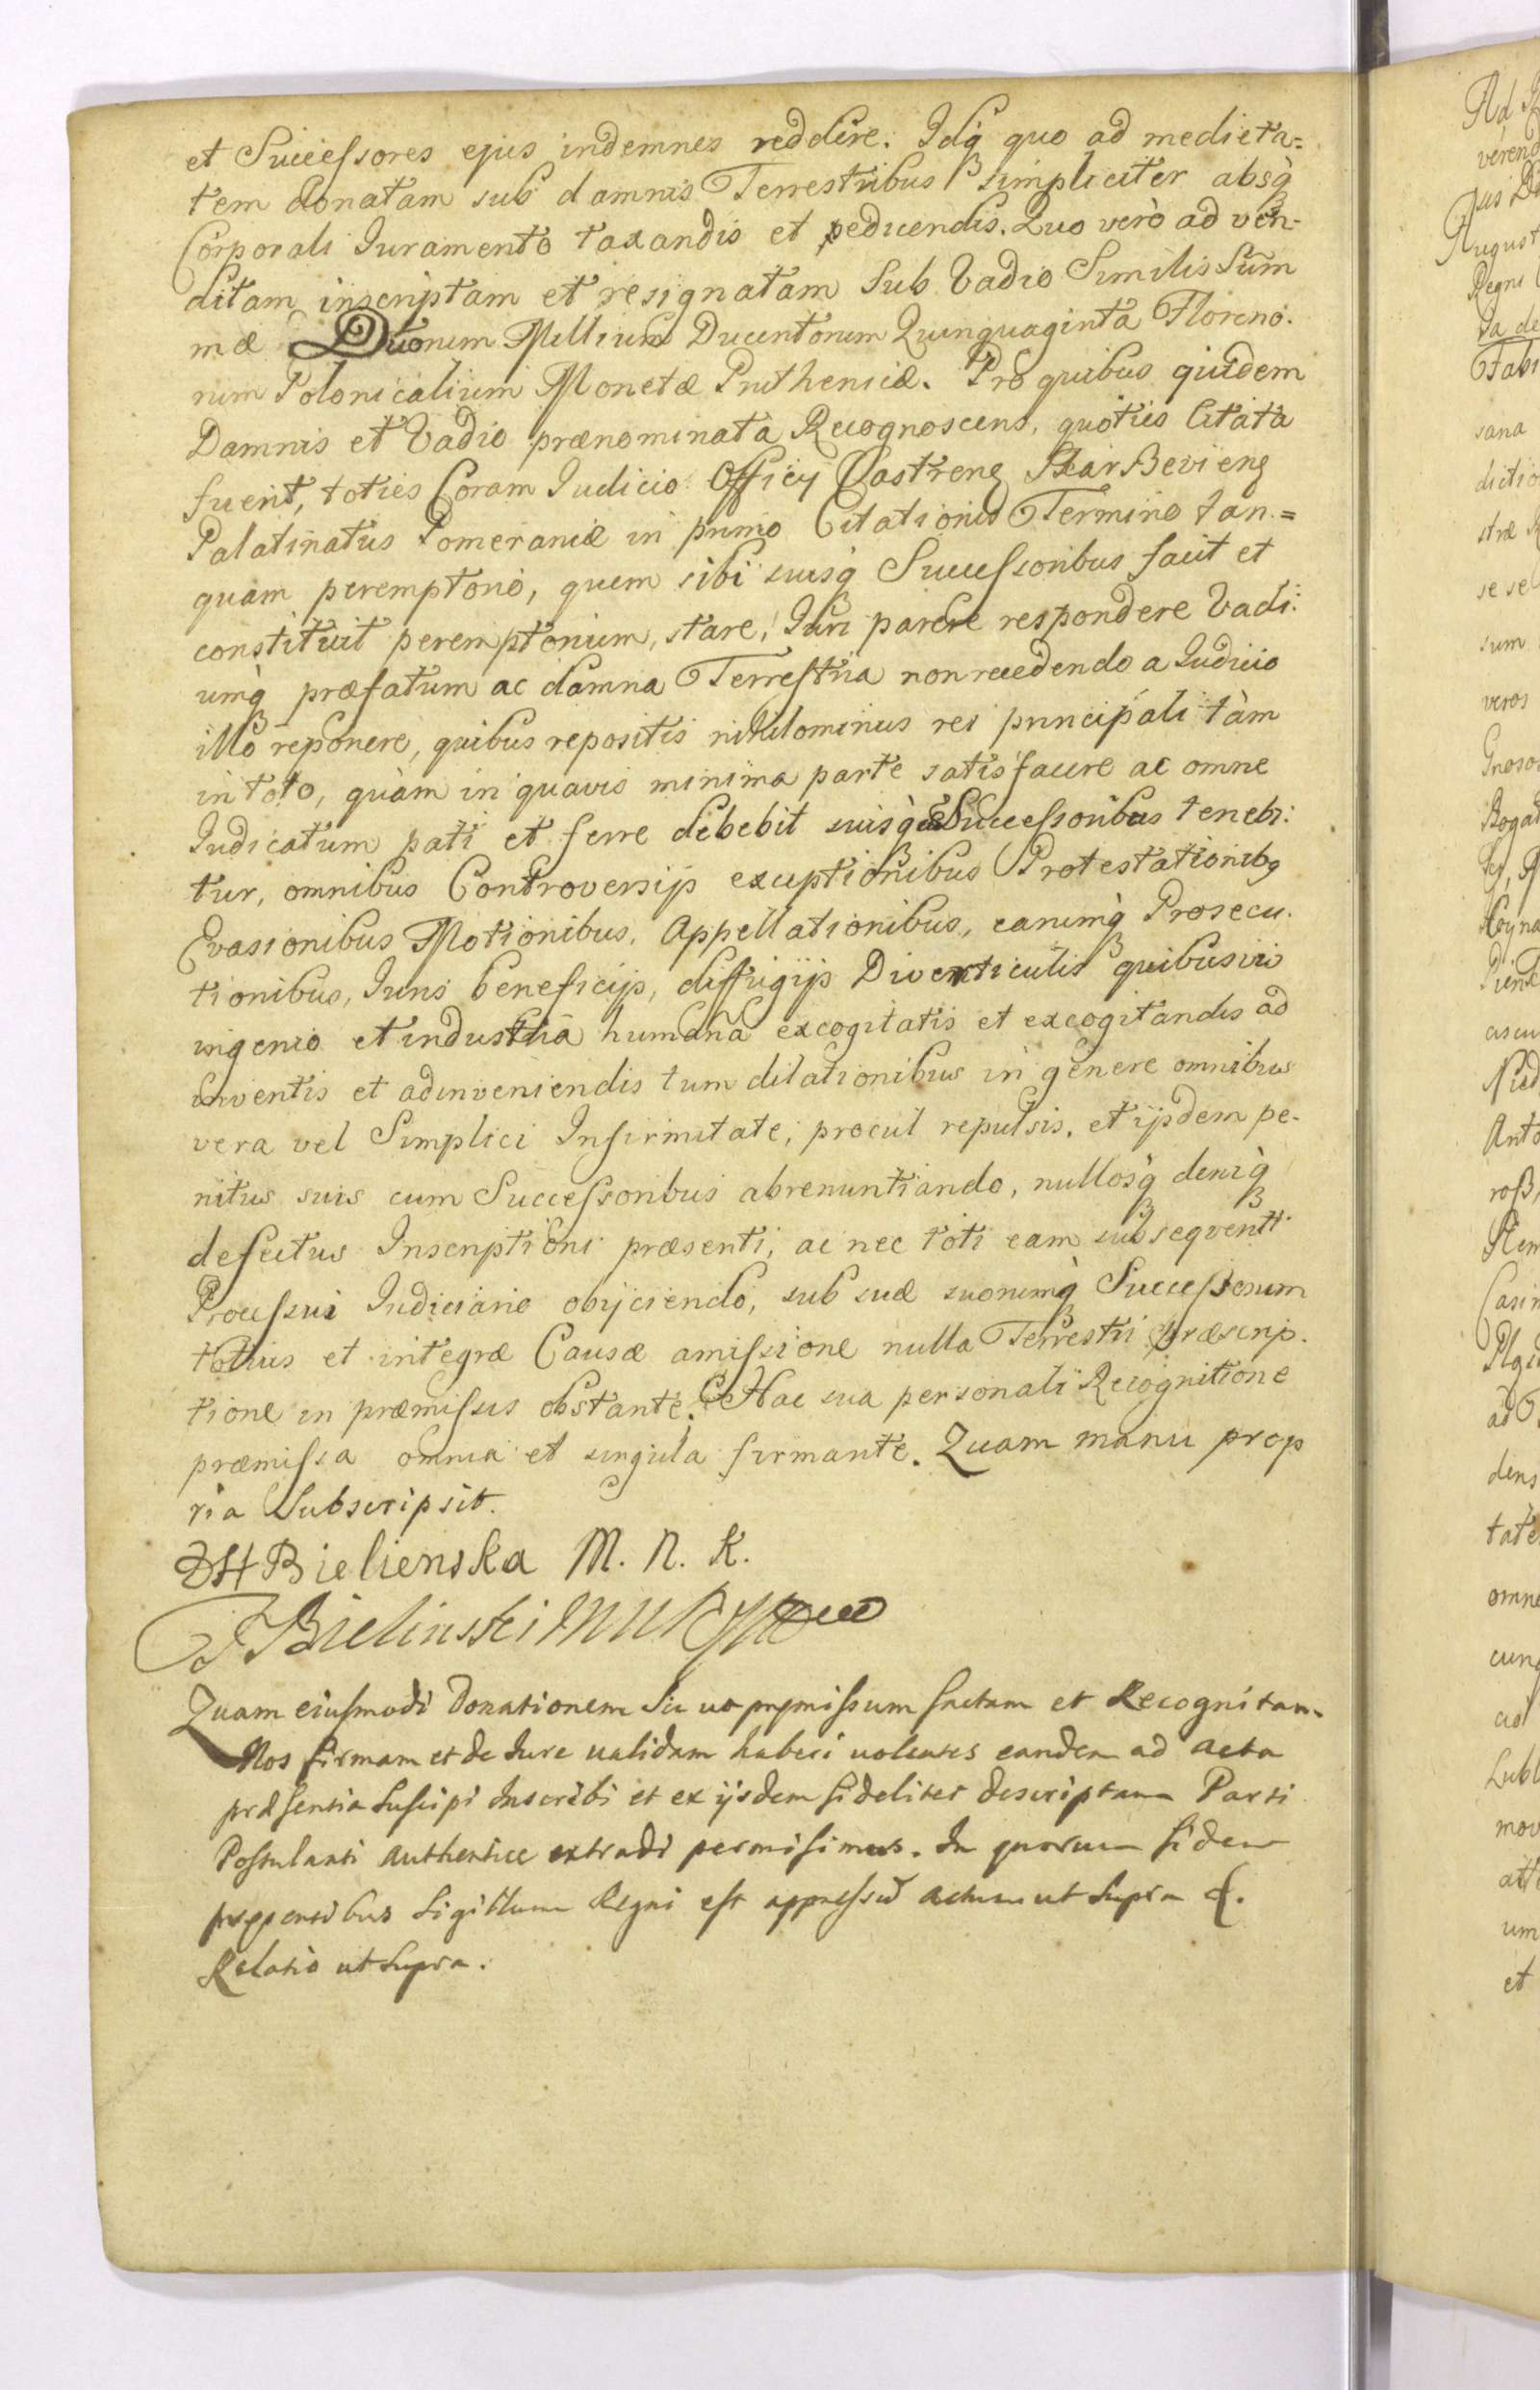 et Successores ejus indemnes reddere. Idq quo ad medieta=
tem donatam sub damnis Terrestribus simpliciter absq
Corporali Iuramento taxandis et peducendis. Quo verò ad ven-
ditam inscriptam et resignatam sub Vadio Similis Sum
mæ Duorum Millium Ducentorum Quinquaginta Floreno.
rum Polonicalium Monetæ Pruthenicæ. Pro quibus quidem
Damnis et Vadio prænominata Recognoscens, quoties Citata
fuerit, toties Coram Iudicio Officij Castreng SkarBevieng
Palatinatus Pomeraniæ in primo Citationis Termino tan=
quam peremptorio, quem sibi suisq Successoribus facit et
constituit peremptorium, stare, Iuri parere respondere Vadi:
umq præfatum ac damna Terrestria non recedendo a Iudicio
illo reponere, quibus repositis nihilominus rei principali tàm
in toto, quàm in quavis minima parte satisfacere ac omne
Iudicatum pati et ferre debebit suisq Successoribus tenebi:
tur, omnibus Controversijs exceptionibus Protestationibg
Evasionibus Motionibus, Appellationibus, earumq Prosecu.
tionibus, Iuris beneficijs, diffugijs Diverticulis quibusvis
ingenio et industria humana excogitatis et excogitandis ad
inventis et adinveniendis tum dilationibus in genere omnibus
vera vel Simplici Infirmitate, procul repulsis, et ijsdem pe-
nitus suis cum Successoribus abrenuntiando, nullosq deniq
defectus Inscriptioni præsenti, ac nec toti eam subsequenti
Processui Iudiciario obijciendo, sub suæ suorumq Successorum
totius et integræ Causæ amissione nulla Terrestri præscrip.
tione in præmissis obstante. Hac sua personali Recognitione
præmissa omnia et singula firmante. Quam manu prop
ria Subscripsit.
Bielienska M. N. K.
FBielinski MNK
Quam eiusmodi Donationem Sic ut præmissum factam et Recognitam
Nos firmam et de Iure validam haberi volentes eandem ad acta
præsentia Suscipi Inscribi et ex ijsdem fideliter descriptam Parti
Postulanti Authentice extradi permisimus. In quorum fidem
præsentibus Sigillum Regni est appressum Actum ut Supra &.
Relatio ut Supra.